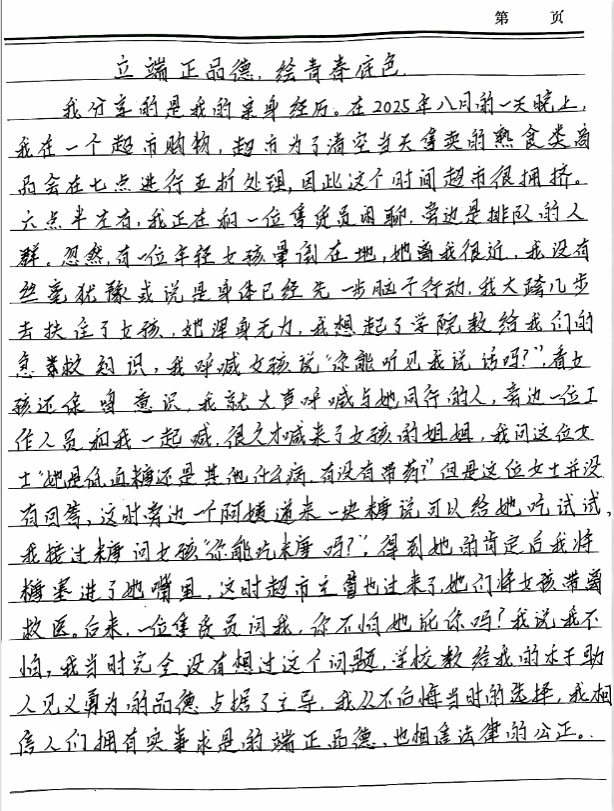 第 页
立端正品德,绘青春底色.
我分享的是我的亲身经历。在2025年八月的一天晚上,
我在一个超市购物,超市为了清空当天售卖的熟食类商
品会在七点进行五折处理,因此这个时间超市很拥挤。
六点半左右,我正在和一位售货员闲聊,旁边是排队的人
群。忽然,有一位年轻女孩晕倒在地,她离我很近,我没有
丝毫犹豫或说是身体已经先一步脑子行动,我大踏几步
去扶住了女孩,她浑身无力,我想起了学院教给我们的
急救知识,我呼喊女孩说“你能听见我说话吗?”,看女
孩还保留意识,我就大声呼喊与她同行的人,旁边一位工
作人员和我一起喊,很久才喊来了女孩的姐姐,我问这位女
士“她是低血糖还是其他什么病,有没有带药?”但是这位女士并没
有回答,这时旁边一个阿姨递来一块糖说可以给她吃试试,
我接过糖问女孩“你能吃糖吗?”,得到她的肯定后我将
糖塞进了她嘴里,这时超市主管也过来了,她们将女孩带离
救医。后来,一位售货员问我,你不怕她讹你吗?我说我不
怕,我当时完全没有想过这个问题,学校教给我的乐于助
人见义勇为的品德占据了主导,我从不后悔当时的选择,我相
信人们拥有实事求是的端正品德,也相信法律的公正。